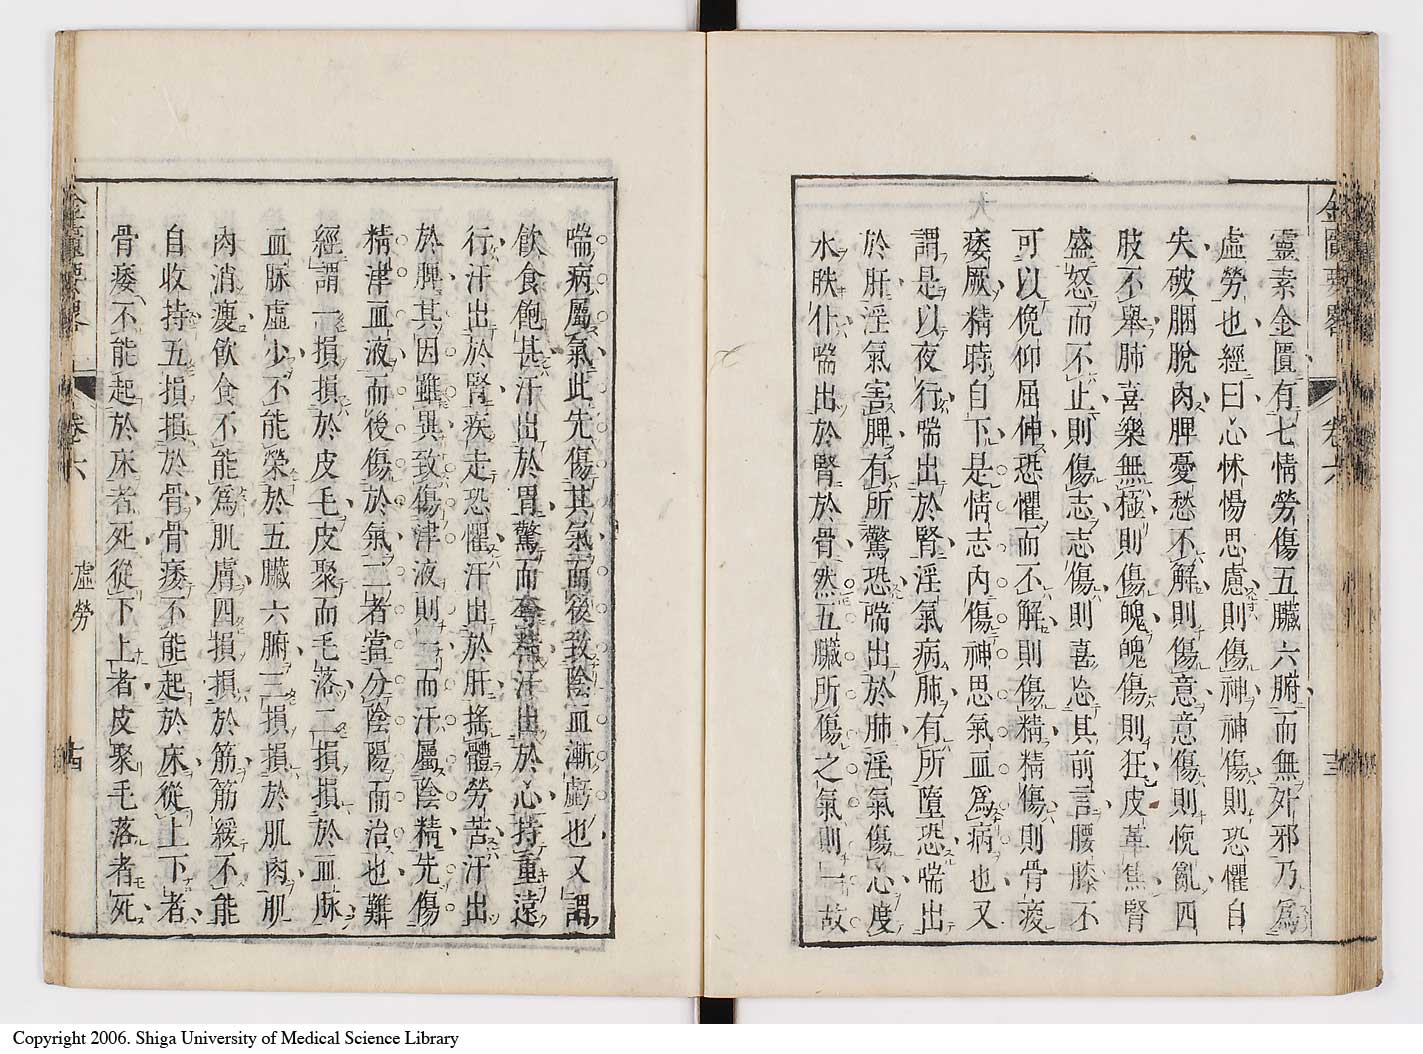 金匱要畧 卷六 十三
靈素金匱有七情勞傷五臟六腑而無外邪乃爲
虛勞也經曰心怵惕思慮則傷神神傷則恐懼自
失破䐃脫肉脾憂愁不解則傷意意傷則悗亂四
肢不舉肺喜樂無極則傷魄魄傷則狂皮革焦腎
盛怒而不止則傷志志傷則喜忘其前言腰膝不
可以俛仰屈伸恐懼而不解則傷精精傷則骨痠
痿厥精時自下是情志內傷神思氣血爲病也又
謂是以夜行喘出於腎淫氣病肺有所墮恐喘出
於肝淫氣害脾有所驚恐喘出於肺淫氣傷心度
水跌仆喘出於腎於骨然五臟所傷之氣則一故
喘病屬氣此先傷其氣而後致陰血漸虧也又謂
飮食飽甚汗出於胃驚而奪精汗出於心持重遠
行汗出於腎疾走恐懼汗出於肝搖體勞苦汗出
於脾其因雖異致傷津液則一而汗屬陰精先傷
精津血液而後傷於氣二者當分陰陽而治也難
經謂一損損於皮毛皮聚而毛落二損損於血脉
血脉虛少不能榮於五臟六腑三損損於肌肉肌
肉消瘦飮食不能爲肌膚四損損於筋筋緩不能
自收持五損損於骨骨痿不能起於床從上下者
骨痿不能起於床者死從下上者皮聚毛落者死
金匱要畧 卷六 虛勞 十四
Copyright 2006. Shiga University of Medical Science Library